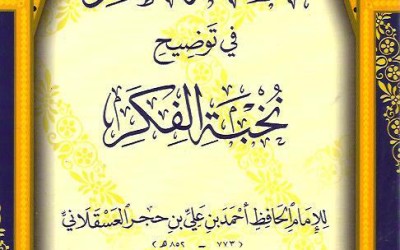 في تَوضِيح
نُخْبَةِ الفِكَرِ
لِلإِمَامِ الحَافِظِ أَحْمَد بن عَلِيّ بن حَجَر العَسْقَلَانِيّ
(٧٧٣ - ٨٥٢ هـ)